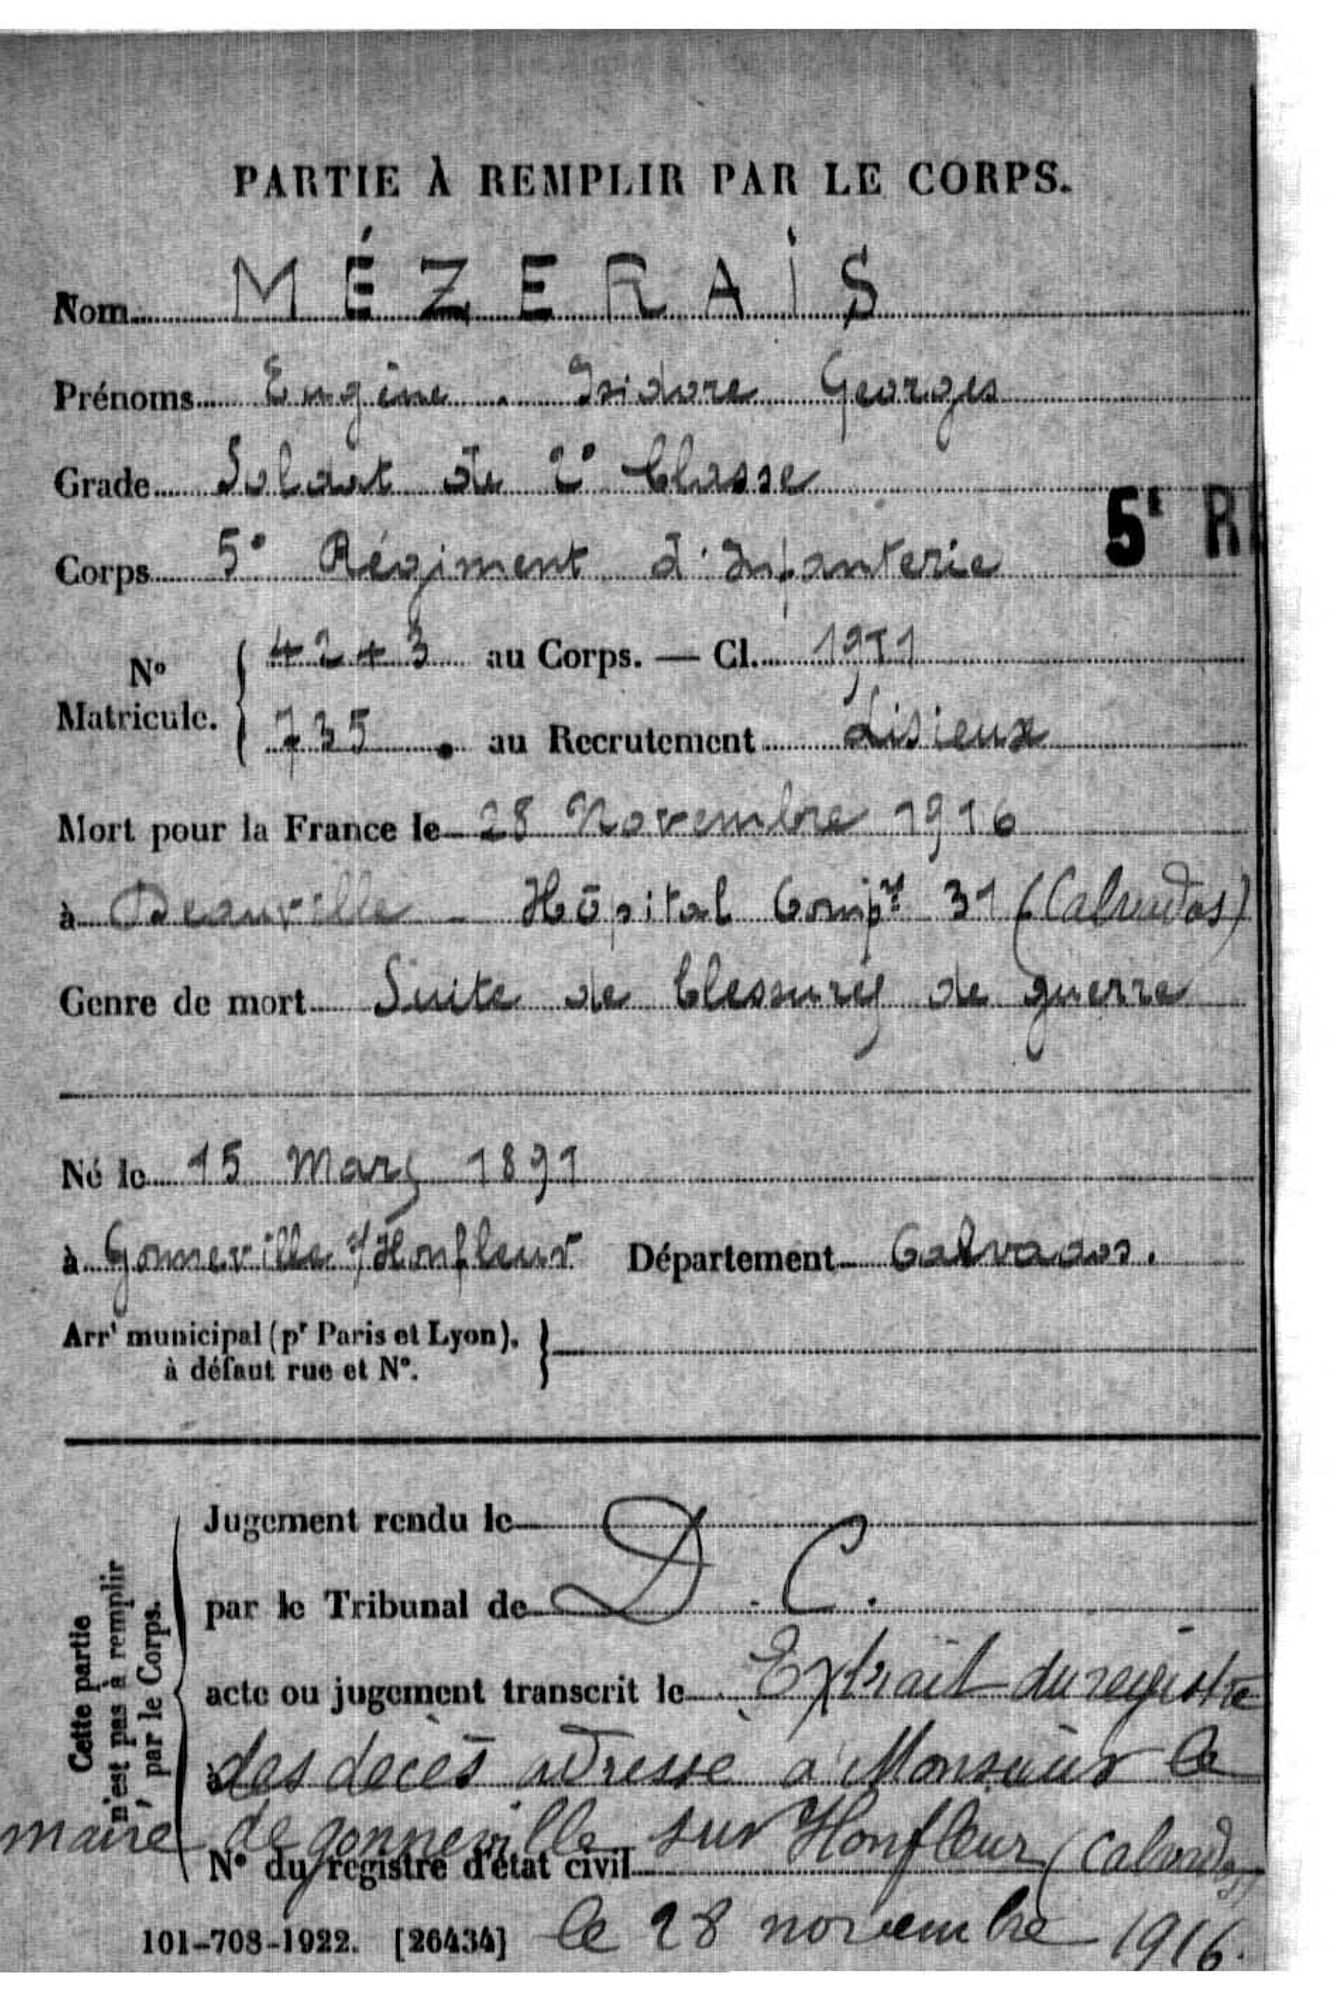 PARTIE À REMPLIR PAR LE CORPS.
Nom MÉZERAIS
Prénoms Eugène . Isidore Georges
Grade Soldat de 2e Classe
Corps 5e Régiment d'Infanterie
5e RI
N° Matricule. { 4243 au Corps. — Cl. 1911
735 . au Recrutement Lisieux
Mort pour la France le 28 Novembre 1916
à Deauville - Hôpital Compre 31 (Calvados)
Genre de mort Suite de blessures de guerre
Né le 15 Mars 1891
à Gonneville s/Honfleur Département Calvados.
Arrt municipal (pr Paris et Lyon), }
à défaut rue et N°.
Cette partie
n'est pas à remplir
par le Corps.
Jugement rendu le
par le Tribunal de D. C.
acte ou jugement transcrit le Extrait du registre
à des décès adressé à Monsieur le
maire de gonneville sur Honfleur (Calvados)
N° du registre d'état civil
101-708-1922. [26434] le 28 novembre 1916.